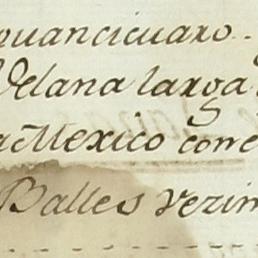 quancicuaro.
Velana larga
a Mexico con el
Balles vezin